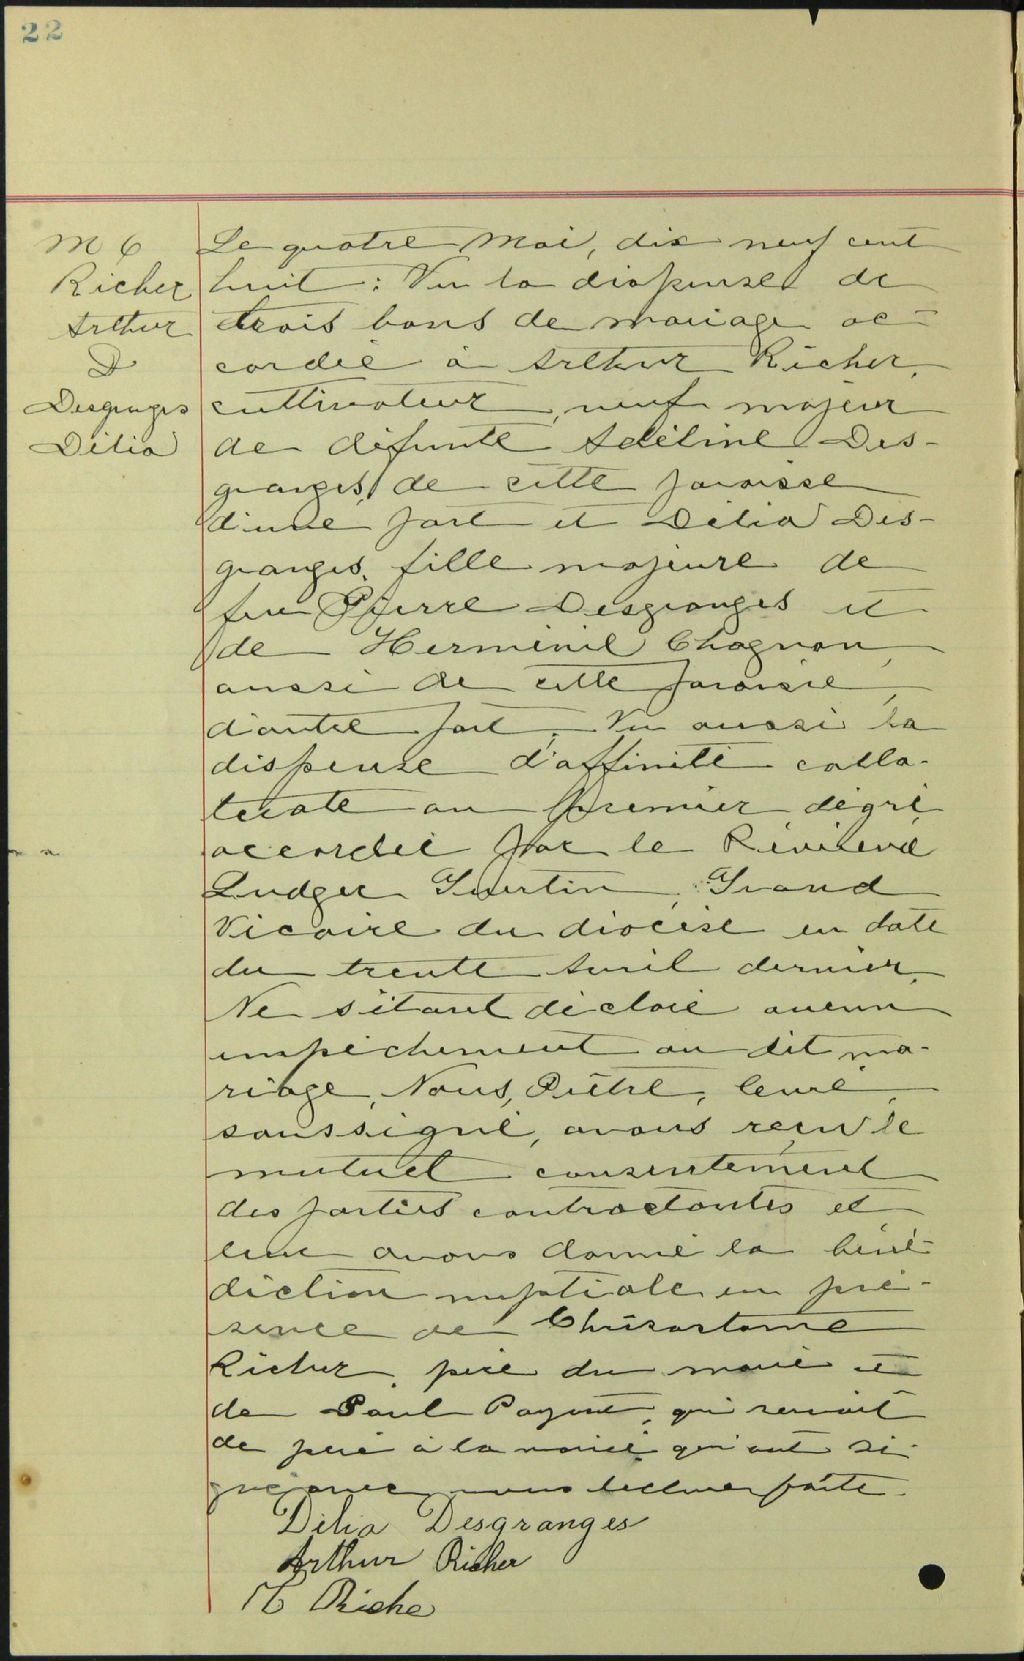 22
M 6
Richer
Arthur
&
Desgranges
Délia
Le quatre Mai, dix neuf cent
huit : Vu la dispense de
trois bans de mariage ac-
cordée à Arthur Richer,
cultivateur, veuf majeur
de défunte Adéline Des-
granges, de cette paroisse
d'une part et Délia Des-
granges, fille majeure de
feu Pierre Desgranges et
de Herménie Chagnon,
aussi de cette paroisse,
d'autre part, Vu aussi la
dispense d'affinité colla-
terale au premier dégré
accordée par le Révérend
Ludger Guertin, Grand
Vicaire du diocèse en date
du trente Avril dernier,
Ne s'étant déclaré aucun
empêchement au dit ma-
riage, Nous, Prêtre, Curé,
soussigné, avons reçu le
mutuel consentement
des parties contractantes et
leur avons donné la béné-
diction nuptiale en pré-
sence de Chrisostome
Richer, père du marié et
de Paul Payant, qui servait
de père à la mariée qui ont si-
gné avec nous lecture faite.
Délia Desgranges
Arthur Richer
Riche